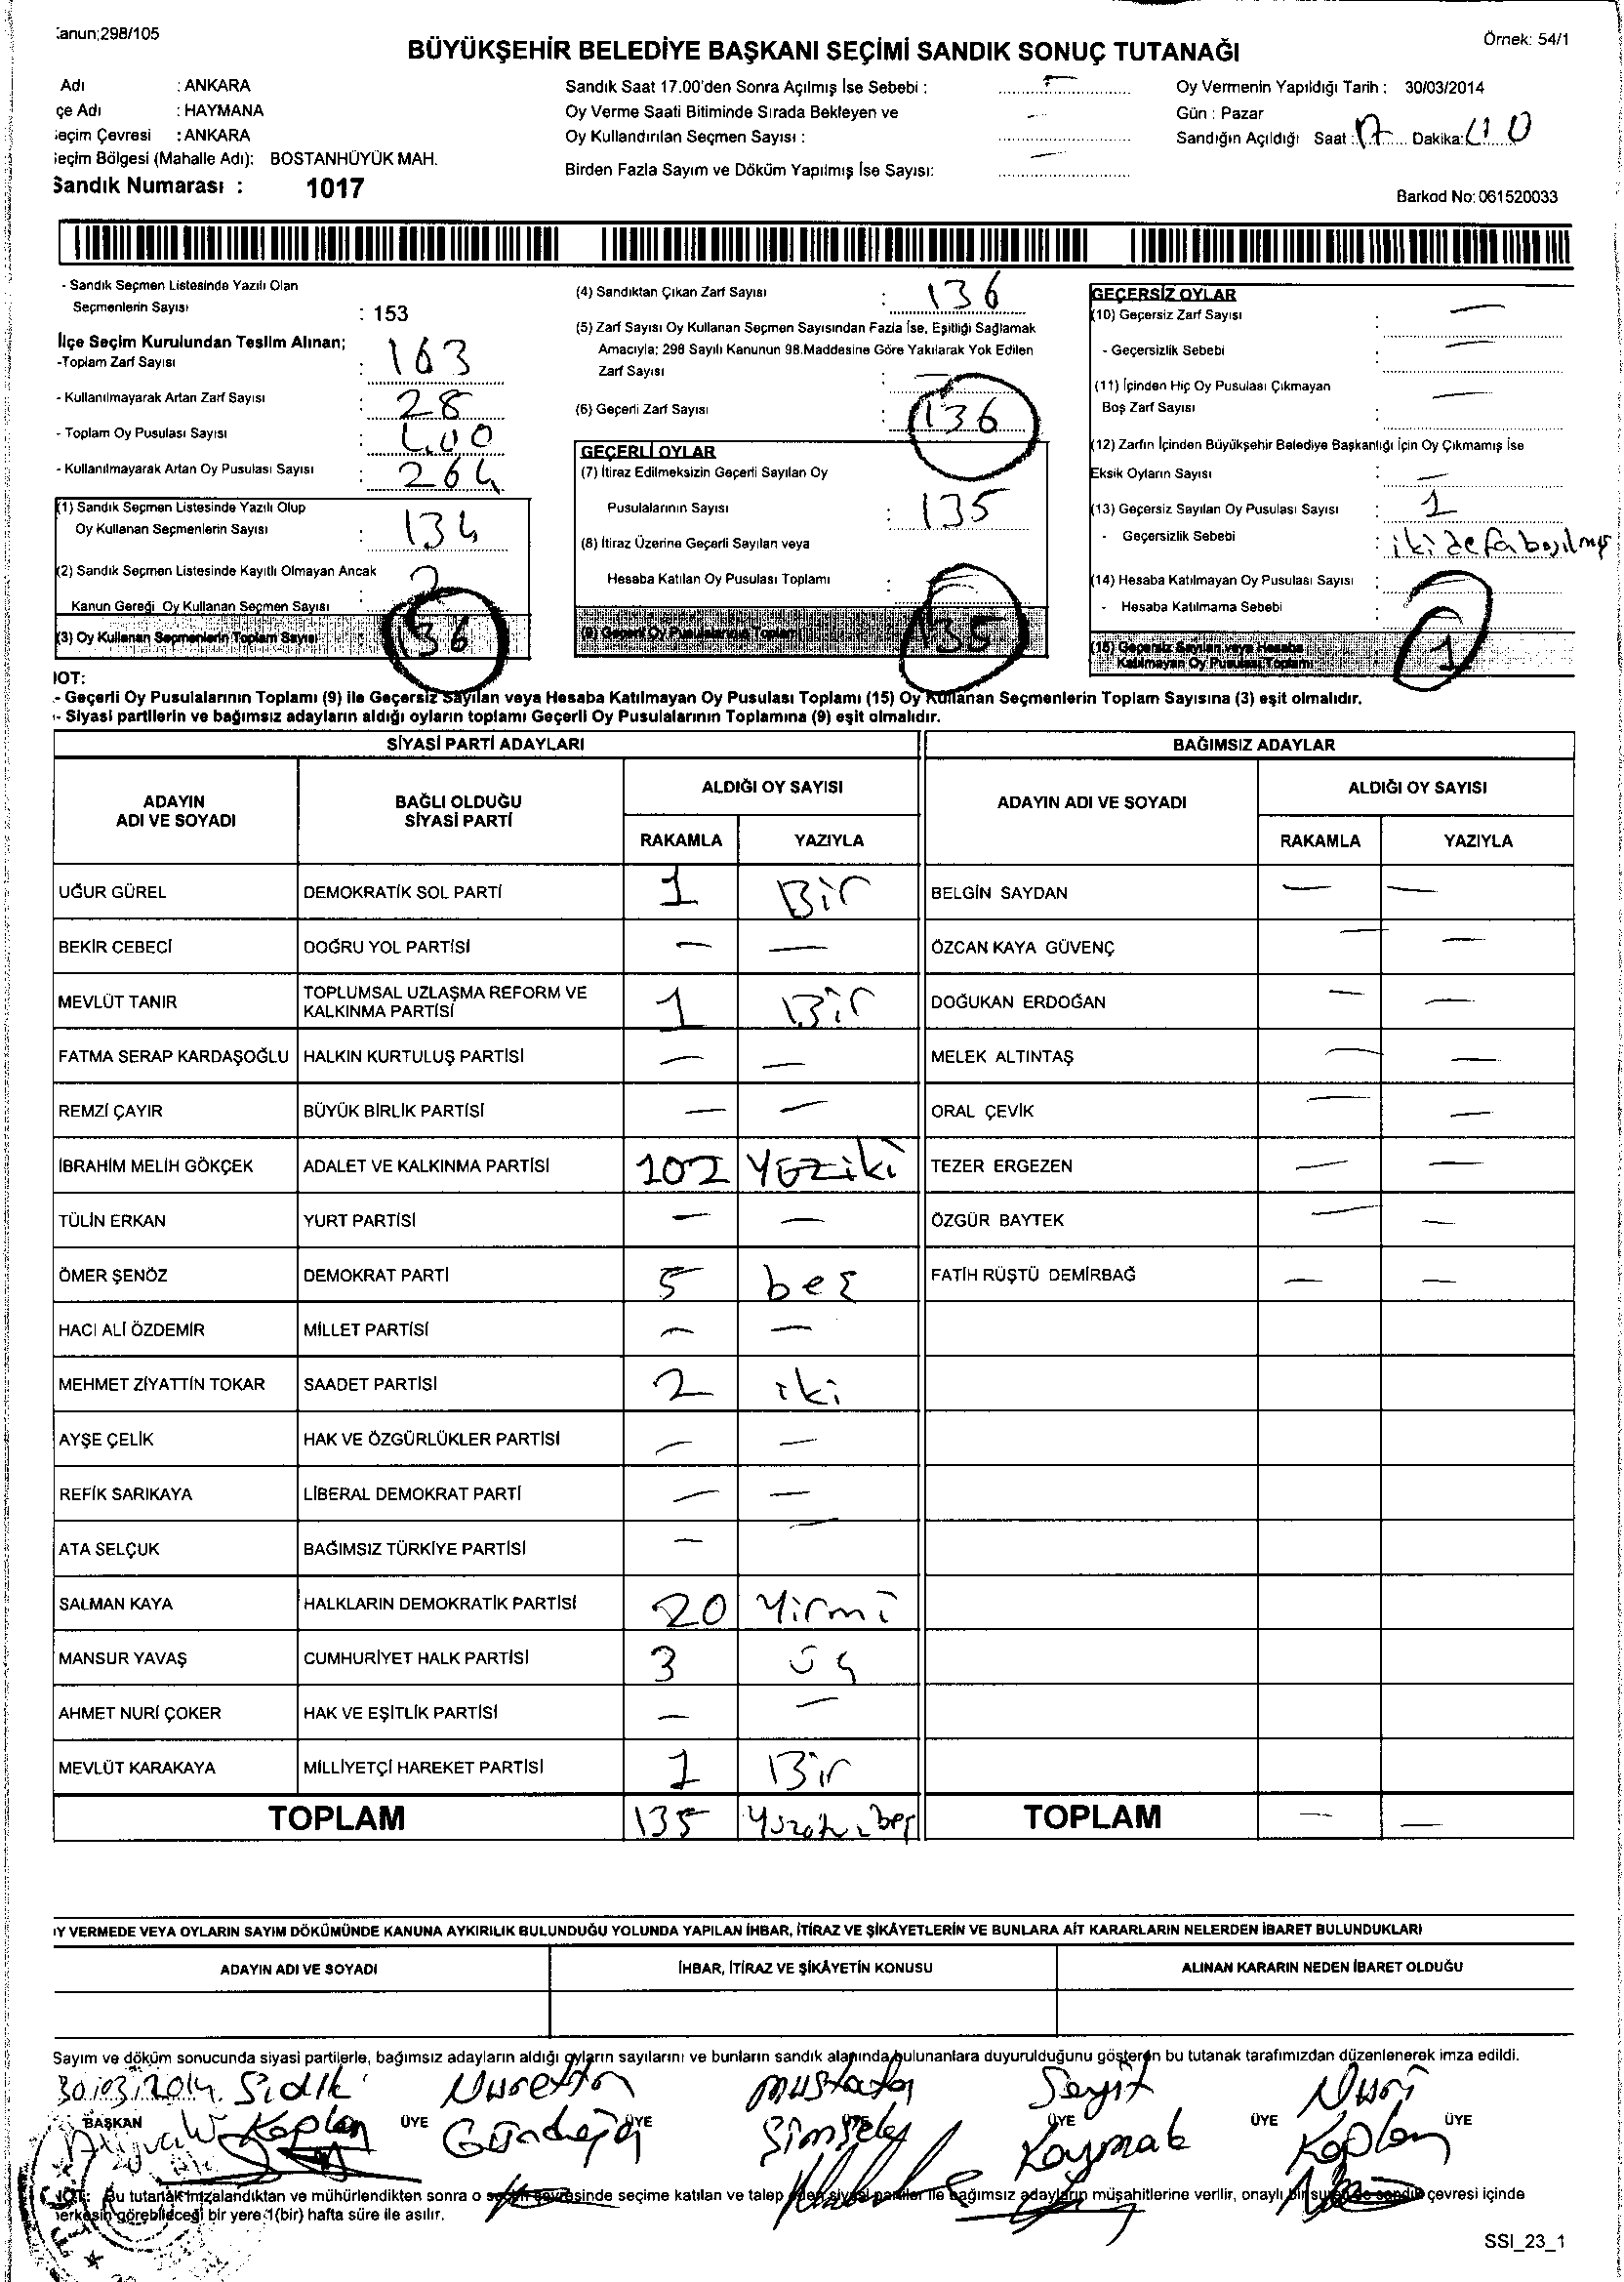 Kanun;298/105
Örnek: 54/1
BÜYÜKŞEHİR BELEDİYE BAŞKANI SEÇİMİ SANDIK SONUÇ TUTANAĞI
Adı : ANKARA
çe Adı : HAYMANA
eçim Çevresi : ANKARA
eçim Bölgesi (Mahalle Adı): BOSTANHÜYÜK MAH.
Sandık Numarası : 1017
Sandık Saat 17.00'den Sonra Açılmış İse Sebebi : —
Oy Verme Saati Bitiminde Sırada Bekleyen ve
Oy Kullandırılan Seçmen Sayısı : —
Birden Fazla Sayım ve Döküm Yapılmış İse Sayısı: —
Oy Vermenin Yapıldığı Tarih : 30/03/2014
Gün : Pazar
Sandığın Açıldığı Saat : 17 Dakika:
Barkod No: 061520033
- Sandık Seçmen Listesinde Yazılı Olan
Seçmenlerin Sayısı : 153
İlçe Seçim Kurulundan Teslim Alınan;
-Toplam Zarf Sayısı : 163
- Kullanılmayarak Artan Zarf Sayısı : 28
- Toplam Oy Pusulası Sayısı : 400
- Kullanılmayarak Artan Oy Pusulası Sayısı : 264
(1) Sandık Seçmen Listesinde Yazılı Olup
Oy Kullanan Seçmenlerin Sayısı : 134
(2) Sandık Seçmen Listesinde Kayıtlı Olmayan Ancak
Kanun Gereği Oy Kullanan Seçmen Sayısı : 2
(3) Oy Kullanan Seçmenlerin Toplam Sayısı 136
(4) Sandıktan Çıkan Zarf Sayısı : 136
(5) Zarf Sayısı Oy Kullanan Seçmen Sayısından Fazla İse, Eşitliği Sağlamak
Amacıyla; 298 Sayılı Kanunun 98.Maddesine Göre Yakılarak Yok Edilen
Zarf Sayısı : —
(6) Geçerli Zarf Sayısı : 136
GEÇERLİ OYLAR
(7) İtiraz Edilmeksizin Geçerli Sayılan Oy
Pusulalarının Sayısı : 135
(8) İtiraz Üzerine Geçerli Sayılan veya
Hesaba Katılan Oy Pusulası Toplamı : —
(9) Geçerli Oy Pusulalarının Toplamı 135
GEÇERSİZ OYLAR
(10) Geçersiz Zarf Sayısı : —
- Geçersizlik Sebebi : —
(11) İçinden Hiç Oy Pusulası Çıkmayan
Boş Zarf Sayısı : —
(12) Zarfın İçinden Büyükşehir Belediye Başkanlığı İçin Oy Çıkmamış İse
Eksik Oyların Sayısı : —
(13) Geçersiz Sayılan Oy Pusulası Sayısı : 1
- Geçersizlik Sebebi : iki defa basılmış
(14) Hesaba Katılmayan Oy Pusulası Sayısı : —
- Hesaba Katılmama Sebebi :
(15) Geçersiz Sayılan veya Hesaba
Katılmayan Oy Pusulası Toplamı 1
NOT:
- Geçerli Oy Pusulalarının Toplamı (9) ile Geçersiz Sayılan veya Hesaba Katılmayan Oy Pusulası Toplamı (15) Oy Kullanan Seçmenlerin Toplam Sayısına (3) eşit olmalıdır.
- Siyasi partilerin ve bağımsız adayların aldığı oyların toplamı Geçerli Oy Pusulalarının Toplamına (9) eşit olmalıdır.
SİYASİ PARTİ ADAYLARI BAĞIMSIZ ADAYLAR
ADAYIN ADI VE SOYADI BAĞLI OLDUĞU SİYASİ PARTİ ALDIĞI OY SAYISI ADAYIN ADI VE SOYADI ALDIĞI OY SAYISI
RAKAMLA YAZIYLA RAKAMLA YAZIYLA
UĞUR GÜREL DEMOKRATİK SOL PARTİ 1 Bir BELGİN SAYDAN — —
BEKİR CEBECİ DOĞRU YOL PARTİSİ — — ÖZCAN KAYA GÜVENÇ — —
MEVLÜT TANIR TOPLUMSAL UZLAŞMA REFORM VE KALKINMA PARTİSİ 1 Bir DOĞUKAN ERDOĞAN — —
FATMA SERAP KARDAŞOĞLU HALKIN KURTULUŞ PARTİSİ — — MELEK ALTINTAŞ — —
REMZİ ÇAYIR BÜYÜK BİRLİK PARTİSİ — — ORAL ÇEVİK — —
İBRAHİM MELİH GÖKÇEK ADALET VE KALKINMA PARTİSİ 102 Yüziki TEZER ERGEZEN — —
TÜLİN ERKAN YURT PARTİSİ — — ÖZGÜR BAYTEK — —
ÖMER ŞENÖZ DEMOKRAT PARTİ 5 beş FATİH RÜŞTÜ DEMİRBAĞ — —
HACI ALİ ÖZDEMİR MİLLET PARTİSİ — —
MEHMET ZİYATTİN TOKAR SAADET PARTİSİ 2 iki
AYŞE ÇELİK HAK VE ÖZGÜRLÜKLER PARTİSİ — —
REFİK SARIKAYA LİBERAL DEMOKRAT PARTİ — —
ATA SELÇUK BAĞIMSIZ TÜRKİYE PARTİSİ — —
SALMAN KAYA HALKLARIN DEMOKRATİK PARTİSİ 20 Yirmi
MANSUR YAVAŞ CUMHURİYET HALK PARTİSİ 3 üç
AHMET NURİ ÇOKER HAK VE EŞİTLİK PARTİSİ — —
MEVLÜT KARAKAYA MİLLİYETÇİ HAREKET PARTİSİ 1 Bir
TOPLAM 135 Yüzotuzbeş TOPLAM — —
OY VERMEDE VEYA OYLARIN SAYIM DÖKÜMÜNDE KANUNA AYKIRILIK BULUNDUĞU YOLUNDA YAPILAN İHBAR, İTİRAZ VE ŞİKÂYETLERİN VE BUNLARA AİT KARARLARIN NELERDEN İBARET BULUNDUKLARI
ADAYIN ADI VE SOYADI İHBAR, İTİRAZ VE ŞİKÂYETİN KONUSU ALINAN KARARIN NEDEN İBARET OLDUĞU
Sayım ve döküm sonucunda siyasi partilerle, bağımsız adayların aldığı oyların sayılarını ve bunların sandık alanında bulunanlara duyurulduğunu gösteren bu tutanak tarafımızdan düzenlenerek imza edildi.
30/03/2014 Sıdık Nurettin mustafa Seyit Nuri
BAŞKAN Kaplan ÜYE ÜYE Şimşek ÜYE Kaymak ÜYE Kaplan ÜYE
NOT: Bu tutanak imzalandıktan ve mühürlendikten sonra o seçim çevresinde seçime katılan ve talep eden siyasi partiler ile bağımsız adayların müşahitlerine verilir, onaylı bir sureti de sandık çevresi içinde
herkesin görebileceği bir yere 1(bir) hafta süre ile asılır.
SSI_23_1